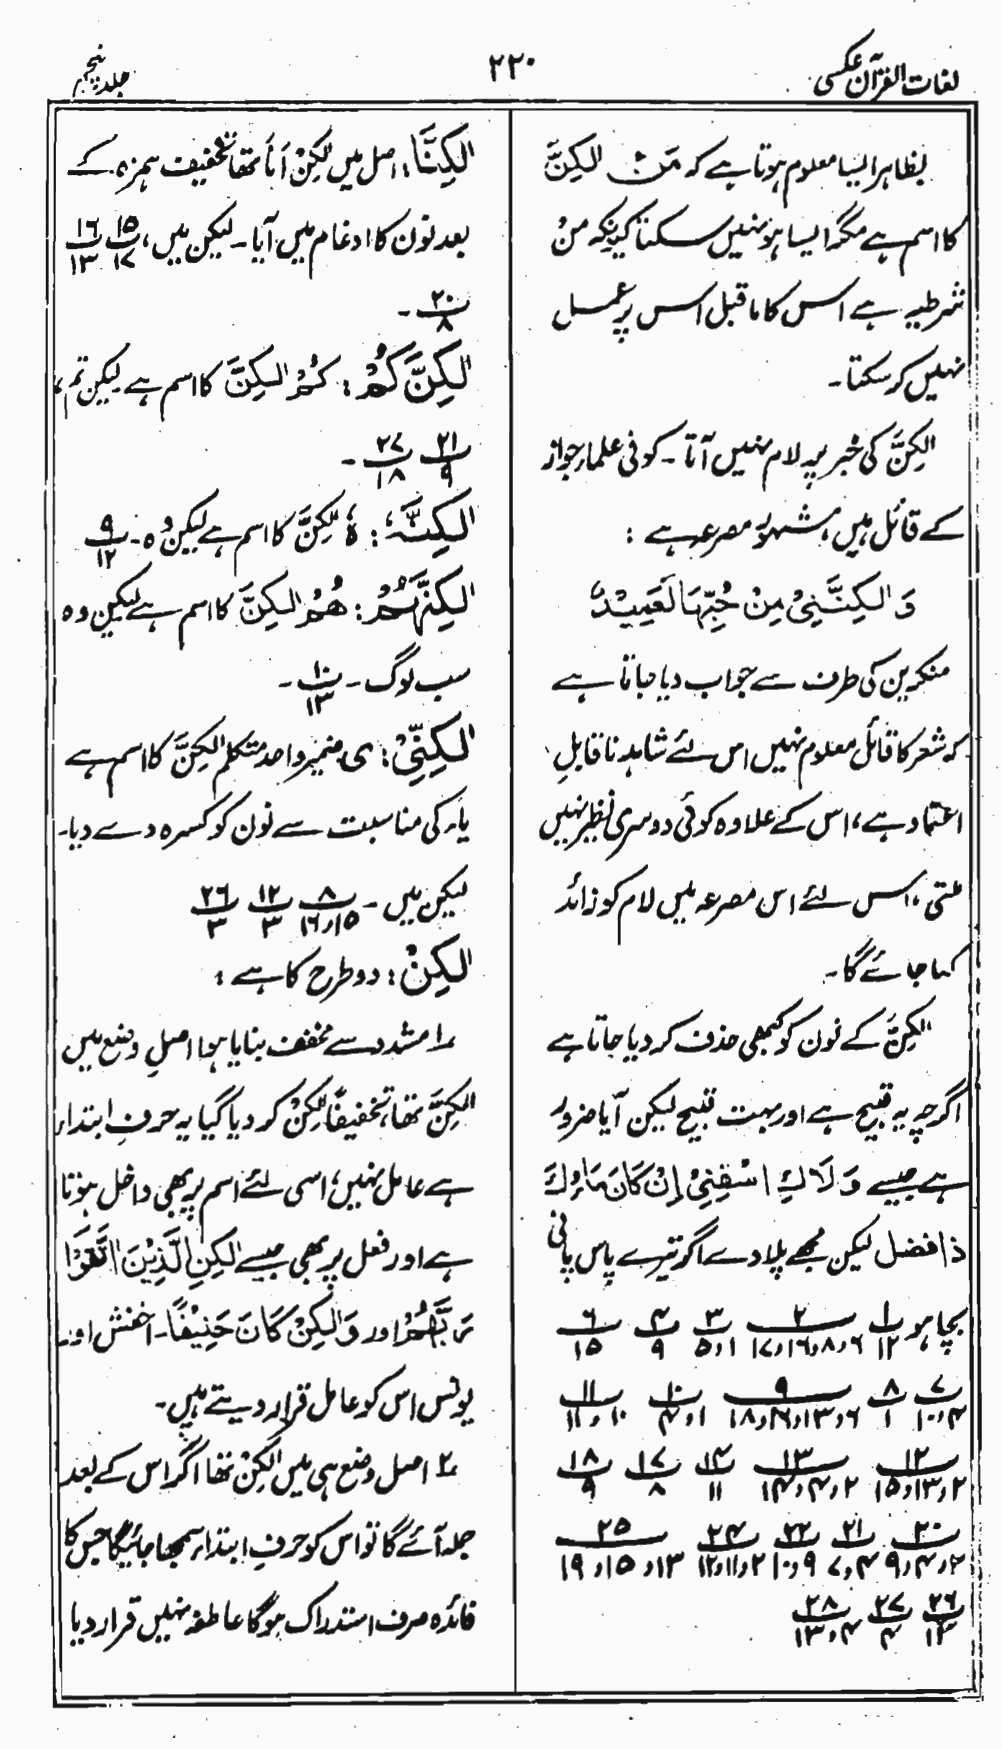 لغات القرآن عکسی
۲۲۰
جلد پنجم
بظاہر ایسا معلوم ہوتا ہے کہ مَنْ لٰکِنَّ
کا اسم ہے مگر ایسا ہو نہیں سکتا کیونکہ مَنْ
شرطیہ ہے اس کا ماقبل اس پر عمل
نہیں کر سکتا۔
لٰکِنَّ کی خبر پر لام نہیں آتا۔ کوفی علماء جواز
کے قائل ہیں، مشہور مصرعہ ہے :
وَلٰکِنَّنِیْ مِنْ حُبِّہَا لَعَمِیْدُ
منکرین کی طرف سے جواب دیا جاتا ہے
کہ شعر کا قائل معلوم نہیں اس لئے شاہد ناقابلِ
اعتماد ہے، اس کے علاوہ کوئی دوسری نظیر نہیں
ملتی، اس لئے اس مصرعہ میں لام کو زائد
کہا جائے گا۔
لٰکِنَّ کے نون کو کبھی حذف کر دیا جاتا ہے
اگرچہ یہ قبیح ہے اور بہت قبیح لیکن آیا ضرور
ہے جیسے وَلَاكِ اسْقِنِیْ اِنْ کَانَ مَاءُكَ
ذا فضل لیکن مجھے پلا دے اگر تیرے پاس پانی
بچا ہو ۱/۱۲ ۲/۶،۸،۱۶،۱۷ ۳/۱،۵ ۴/۹ ۶/۱۵
۷/۴،۱۰ ۸/۱ ۹/۶،۱۳،۱۶،۱۸ ۱۰/۱،۴ ۱۱/۱۰،۱۱
۱۲/۲،۱۳،۱۵ ۱۳/۲،۴،۱۴ ۱۴/۱۱ ۱۷/۸ ۱۸/۹
۲۰/۲،۴،۹ ۲۱/۴،۷ ۲۲/۹،۱۰ ۲۴/۲،۱۱،۱۲ ۲۵/۱۳،۱۵،۱۹
۲۶/۱۳ ۲۷/۴ ۲۸/۴،۱۳
لٰکِنَّا : اصل میں لٰکِنْ اَنَا تھا تخفیف ہمزہ کے
بعد نون کا ادغام میں آیا۔ لیکن میں، ۱۵/۱۷ ۱۶/۱۳
۲۰/۸ ۔
لٰکِنَّکُمْ : کُمْ لٰکِنَّ کا اسم ہے لیکن تم،
۲۱/۹ ۲۷/۱۸ ۔
لٰکِنَّہٗ : ہٗ لٰکِنَّ کا اسم ہے لیکن وہ۔ ۹/۱۲
لٰکِنَّہُمْ : ھُمْ لٰکِنَّ کا اسم ہے لیکن وہ
سب لوگ۔ ۱۰/۱۳ ۔
لٰکِنِّیْ : ی ضمیر واحد متکلم لٰکِنَّ کا اسم ہے
یاء کی مناسبت سے نون کو کسرہ دے دیا۔
لیکن میں۔ ۸/۱۵،۱۶ ۱۲/۳ ۲۶/۳
لٰکِنْ : دو طرح کا ہے :
۱ مشدد سے مخفف بنایا ہوا اصل وضع میں
لٰکِنَّ تھا، تخفیفاً لٰکِنْ کر دیا گیا یہ حرفِ ابتداء
ہے عامل نہیں؛ اسی لئے اسم پر بھی داخل ہوتا
ہے اور فعل پر بھی جیسے لٰکِنِ الَّذِیْنَ اتَّقَوْا
رَبَّهُمْ اور وَلٰکِنْ کَانَ حَنِیْفًا۔ اخفش اور
یونس اس کو عامل قرار دیتے ہیں۔
۲ اصل وضع ہی میں لٰکِنْ تھا اگر اس کے بعد
جملہ آئے گا تو اس کو حرفِ ابتداء سمجھا جائیگا جس کا
فائدہ صرف استدراک ہوگا عاطفہ نہیں قرار دیا